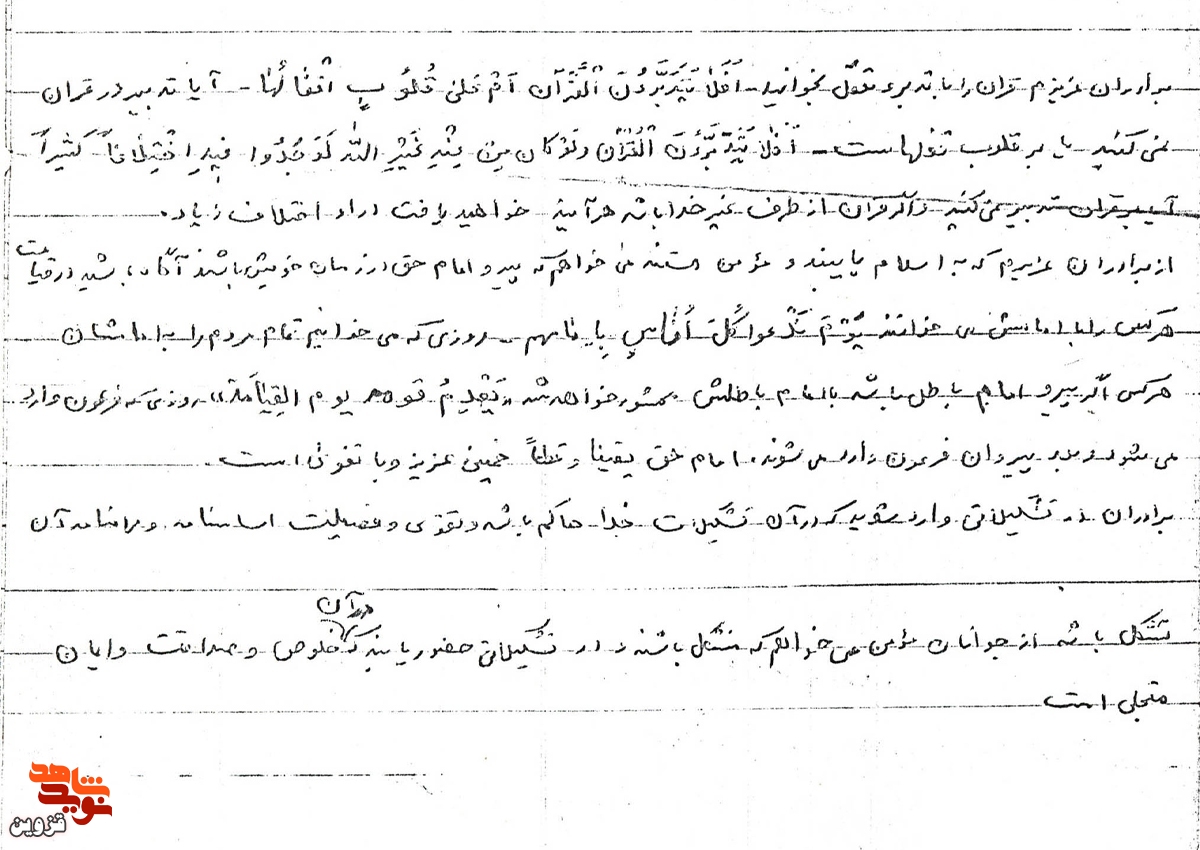 برادران عزیزم قران را با تدبر و تعقل بخوانید. اَفَلا یَتَدَبَّرُونَ الْقُرْآن اَمْ عَلیٰ قُلُوُبٍ اَقْفالُهٰا - آیا تدبیر در قران
نمی کنید یا بر قلوب قفلهاست - اَفَلا یَتَدَبَّرُونَ الْقُرْآن وَلَوْ کٰانَ مِنْ عِنْدِ غَیْرِ اللّٰه لَوَجَدُوا فیهِ اخْتِلافاً کَثیراً
آیا بر قران تدبیر نمی کنید و اگر قران از طرف غیر خدا باشه هرآینه خواهید یافت در او اختلاف زیاد.
از برادران عزیزم که به اسلام پایبند و مؤمن هستند می خواهم که پیرو امام حق در زمان خویش باشند آگاه باشید در قیامت
هرکس را با امامش می خوانند یَوْمَ نَدْعوا کُلَّ اُنٰاسٍ بِاِمٰامِهِم - روزی که می خوانیم تمام مردم را به امامشان
هرکس اگر پیرو امام باطل باشه با امام باطلش محشور خواهد شد «یَقْدِمُ قَومَهُ یوم القِیٰامَة» روزی که فرعون وارد
می شود و پیروان فرعون وارد می شوند. امام حق یقیناً و قطعاً خمینی عزیز و با تقوی است.
برادران در تشکیلاتی وارد شوید که در آن تشکیلات خدا حاکم باشه و تقوی و فضیلت اساسنامه و مرامنامه آن
تشکل باشه از جوانان مؤمن می خواهم که متشکل باشند و در تشکیلاتی حضور یابند که در آن خلوص و صداقت و ایمان
متجلی است
نوید شاهد
قزوین